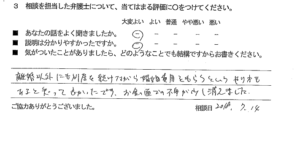 3 相談を担当した弁護士について、当てはまる評価に○をつけてください。
大変よい よい 普通 やや悪い 悪い
■ あなたの話をよく聞きましたか。
■ 説明は分かりやすかったですか。
■ 気がついたことがありましたら、どのようなことでも結構ですからお書きください。
離婚以外にも別居を続けてから婚姻費用ともらうという やり方も
あると知って よかったです。お金の面での不安が少し消えました。
ご協力ありがとうございました。 相談日